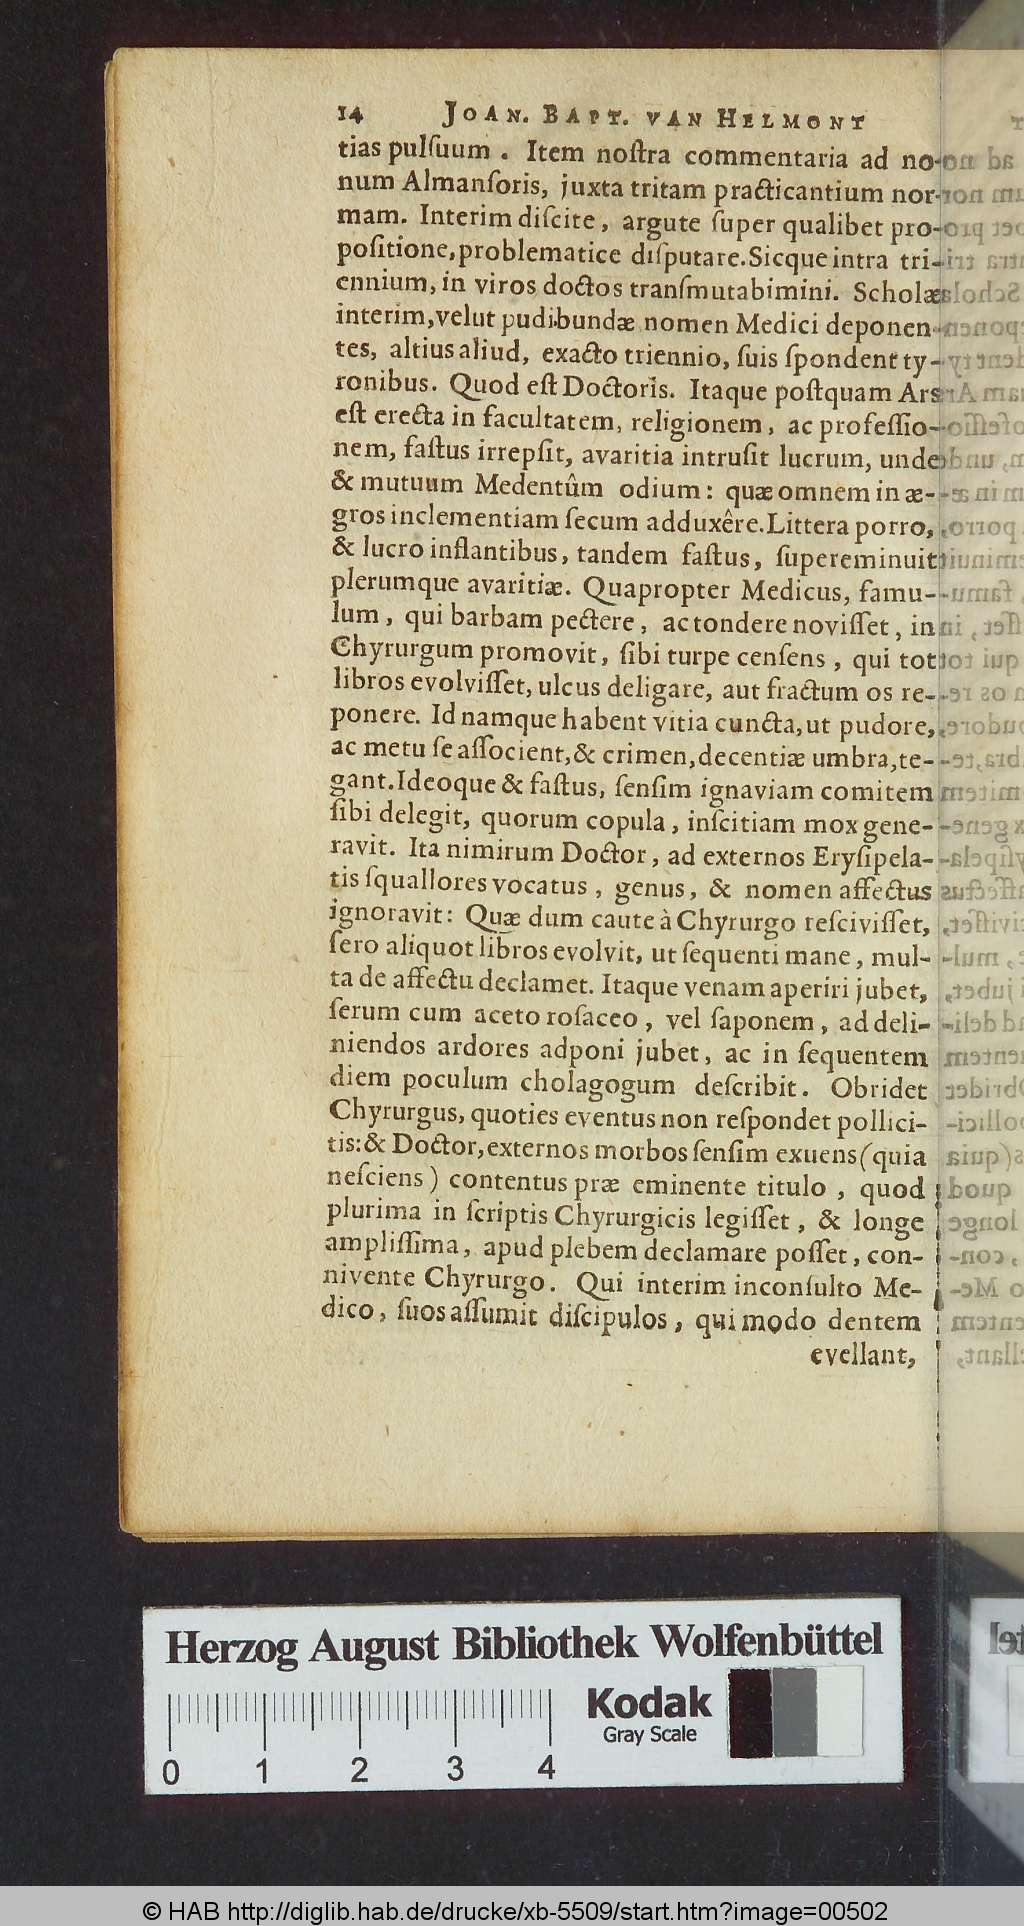 14 JOAN. BAPT. VAN HELMONT
tias pulſuum. Item noſtra commentaria ad no-
num Almanſoris, juxta tritam practicantium nor-
mam. Interim diſcite, argute ſuper qualibet pro-
poſitione, problematice diſputare. Sicque intra tri-
ennium, in viros doctos tranſmutabimini. Scholæ
interim, velut pudibundæ nomen Medici deponen-
tes, altius aliud, exacto triennio, ſuis ſpondent ty-
ronibus. Quod eſt Doctoris. Itaque poſtquam Ars
eſt erecta in facultatem, religionem, ac profeſſio-
nem, faſtus irrepſit, avaritia intruſit lucrum, unde
& mutuum Medentûm odium: quæ omnem in æ-
gros inclementiam ſecum adduxêre. Littera porro,
& lucro inflantibus, tandem faſtus, ſupereminuit
plerumque avaritiæ. Quapropter Medicus, famu-
lum, qui barbam pectere, ac tondere noviſſet, in
Chyrurgum promovit, ſibi turpe cenſens, qui tot
libros evolviſſet, ulcus deligare, aut fractum os re-
ponere. Id namque habent vitia cuncta, ut pudore,
ac metu ſe aſſocient, & crimen, decentiæ umbra, te-
gant. Ideoque & faſtus, ſenſim ignaviam comitem
ſibi delegit, quorum copula, inſcitiam mox gene-
ravit. Ita nimirum Doctor, ad externos Eryſipela-
tis ſquallores vocatus, genus, & nomen affectus
ignoravit: Quæ dum caute à Chyrurgo reſciviſſet,
ſero aliquot libros evolvit, ut ſequenti mane, mul-
ta de affectu declamet. Itaque venam aperiri jubet,
ſerum cum aceto roſaceo, vel ſaponem, ad deli-
niendos ardores adponi jubet, ac in ſequentem
diem poculum cholagogum deſcribit. Obridet
Chyrurgus, quoties eventus non reſpondet pollici-
tis: & Doctor, externos morbos ſenſim exuens (quia
neſciens) contentus præ eminente titulo, quod
plurima in ſcriptis Chyrurgicis legiſſet, & longe
ampliſſima, apud plebem declamare poſſet, con-
nivente Chyrurgo. Qui interim inconſulto Me-
dico, ſuos aſſumit diſcipulos, qui modo dentem
evellant,
Herzog August Bibliothek Wolfenbüttel
Kodak
Gray Scale
0 1 2 3 4
© HAB http://diglib.hab.de/drucke/xb-5509/start.htm?image=00502